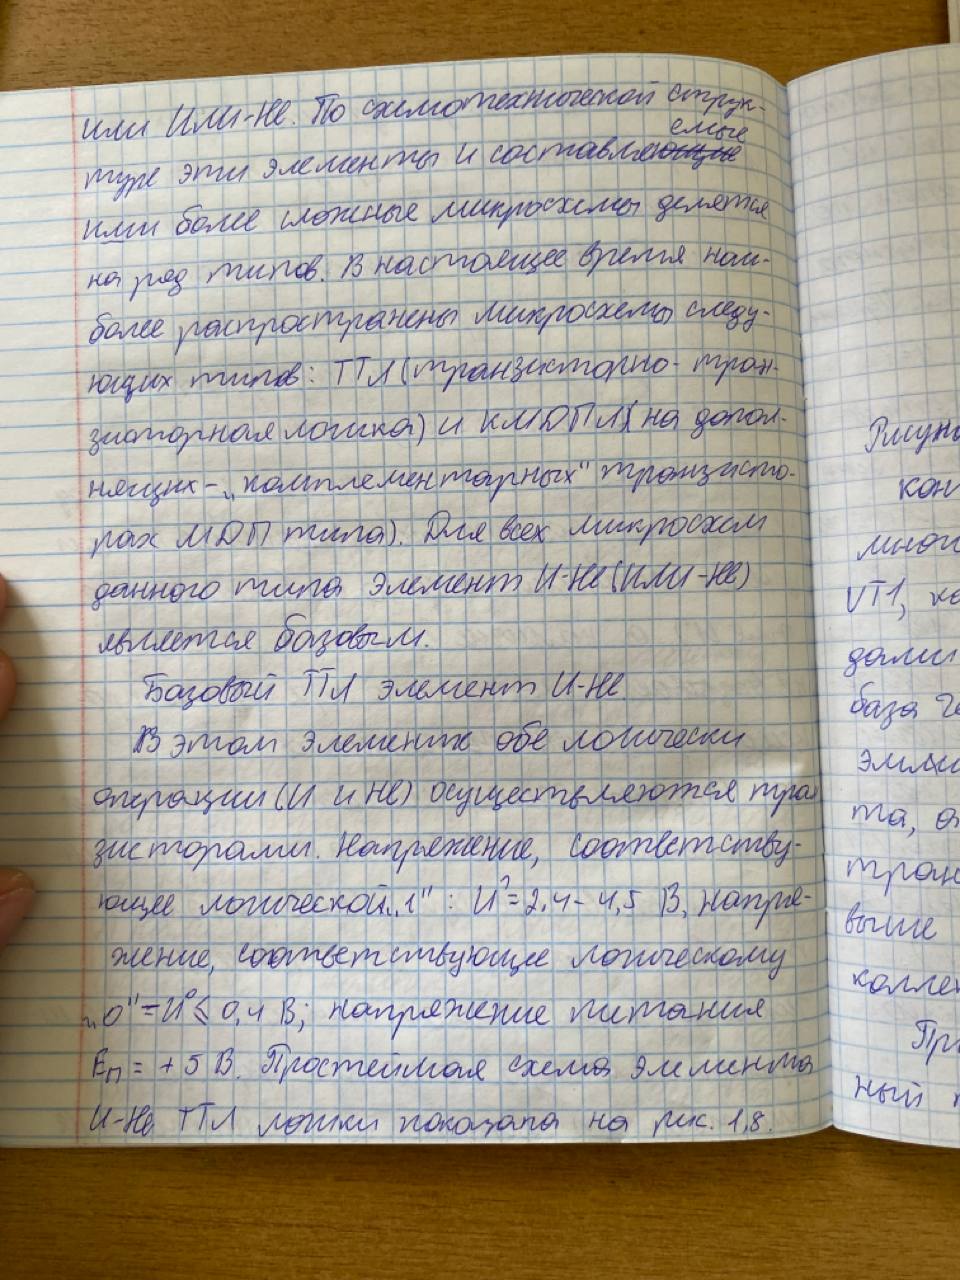 или ИЛИ-НЕ. По схемотехнической струк-
туре эти элементы и составляемые
ими более сложные микросхемы делятся
на ряд типов. В настоящее время наи-
более распространены микросхемы следу-
ющих типов: ТТЛ (транзисторно-тран-
зисторная логика) и КМДПЛ (на допол-
няющих - „комплементарных" транзисто-
рах МДП типа). Для всех микросхем
данного типа элемент И-НЕ (ИЛИ-НЕ)
является базовым.
Базовый ТТЛ элемент И-НЕ
В этом элементе обе логически
операции (И и НЕ) осуществляются тра
зисторами. Напряжение, соответству-
ющее логической „1" : U¹=2,4-4,5 В, напря-
жение, соответствующее логическому
„0"=U⁰≤0,4 В; напряжение питания
Eп = +5 В. Простейшая схема элемента
И-НЕ ТТЛ логики показана на рис. 1,8.
Рисун
кол
мног
VT1, ко
дами
база
эмит
та,
тран
выше
коллек
Пр
ный